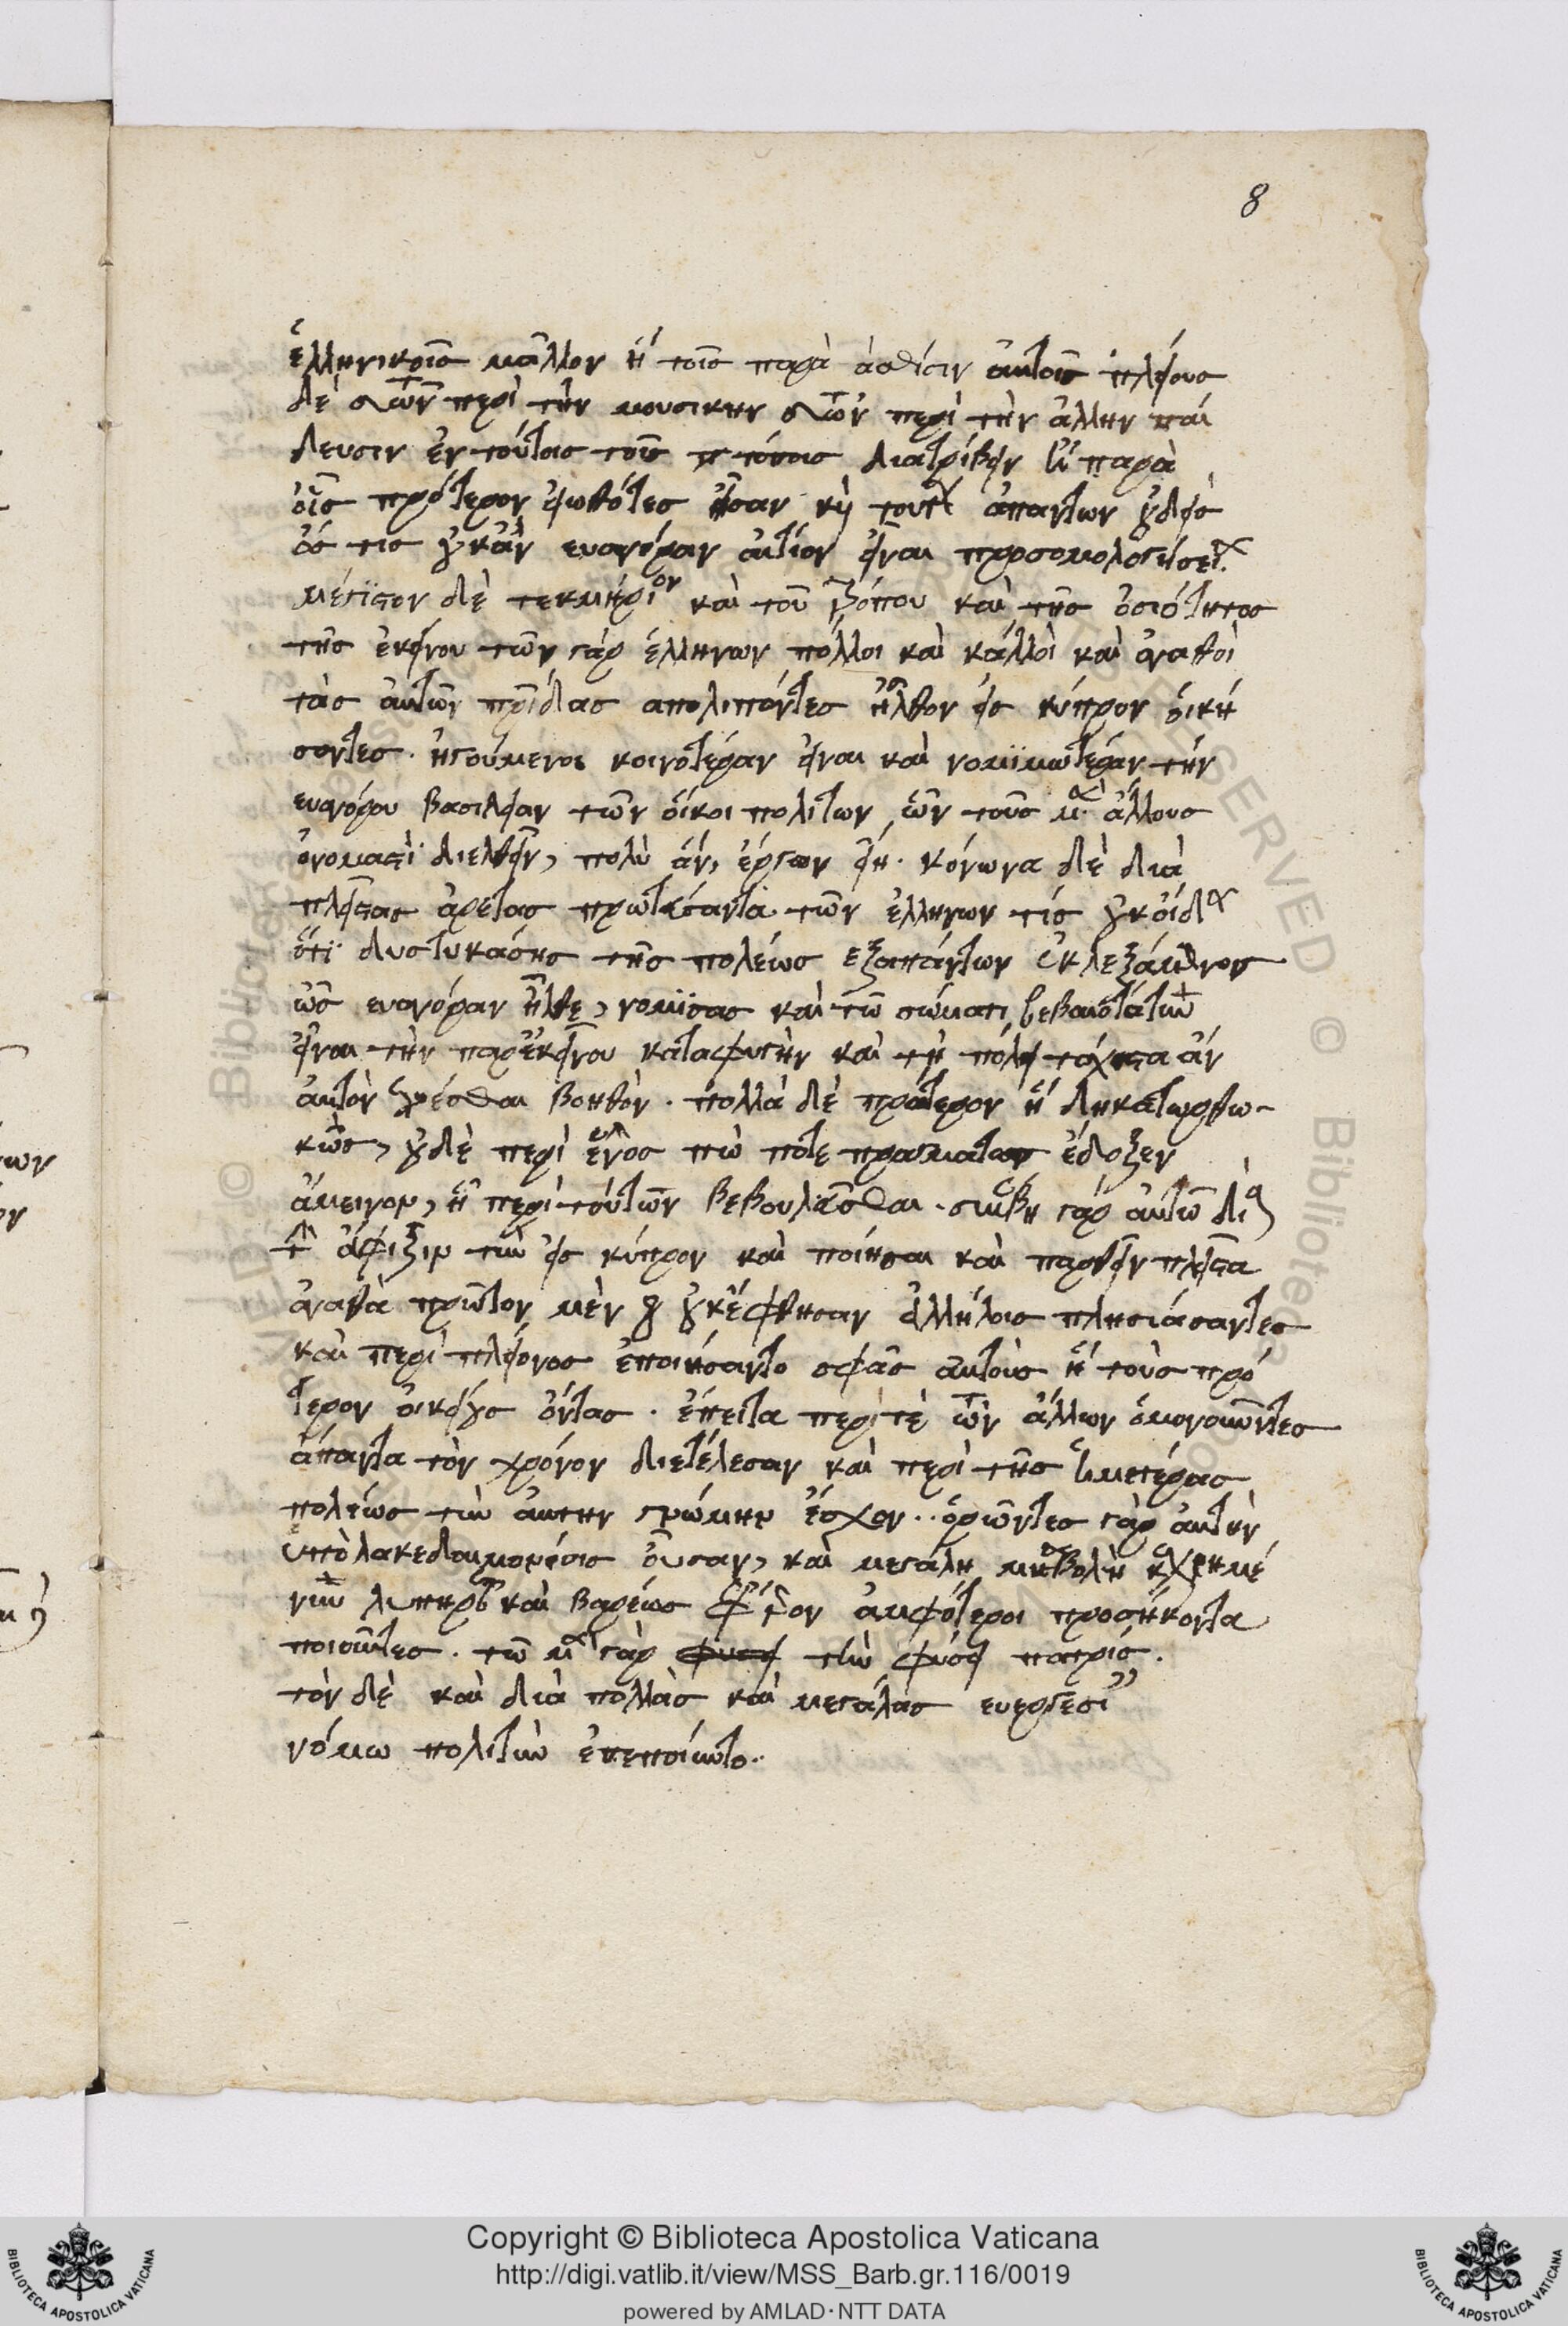 8
ἑλληνικοῖς μᾶλλον ἢ τοῖς παρὰ ἀσθίσιν αὐτοῖς πλείους
δὲ τῶν περὶ τὴν μουσικην τῶν περὶ τὴν ἄλλην παί
δευσιν ἐν τούτοις τοῖς τόποις διατρίβειν ἢ παρὰ
οἷς πρότερον εἰωθότες ἦσαν κὴ τουτ ἀπαντων οὐδεὶς
ὅς τις οὐκ ἂν ευαγόραν αἴτιον εἶναι προσομολογήσειε.
μέγϊστον δὲ τεκμήριον καὶ τοῦ τρόπου καὶ τῆς ὁσιότητος
τῆς ἐκείνου τῶν γὰρ ἑλληνων πόλλοι καὶ κάλλοὶ καὶ ἀγαθοὶ
τὰς αὑτῶν πρίδας απολιπόντες ἦλθον εἰς κύπρον οἰκή
σοντες. ἡγούμενοι κοινοτέραν εἶναι καὶ νομϊμωτέραν τὴν
ευαγόρου βασιλείαν τῶν οἴκοι πολιτων, ὧν τοὺς μὲν ἄλλους
ὀνομαστϊ διελθεῖν, πολὺ ἂν, ἔργων εἴη. κόνωνα δὲ διὰ
πλείστας ἀρετας πρωτεύσαντα τῶν ἑλληνων τίς οὐκ οἶδεν
ὅτϊ δυστυχάσης τῆς πολέως εξαπάντων ἐκλεξάμενος
ὡς ευαγόραν ἦλθε, νομϊσας καὶ τῶ σώματι βεβαιοτάτην
εἶναι τὴν παρ ἐκείνου καταφυγὴν καὶ τῆ πόλει τάχιστα ἂν
αὐτὸν γενέσθαι βοηθὸν. πολλὰ δὲ πρότερον ἤδη κατωρθω-
κὼς, οὐδὲ περὶ ἑνὸς πώ ποτε πραγματος ἔδοξεν
ἄμεινον, ἢ περὶ τούτων βεβουλεῦσθαι. συνέβη γὰρ αὐτῶ διὰ
τὴν ἄφιξιν τὴν εἰς κύπρον καὶ ποίησαι καὶ παθεῖν πλεῖστα
ἀγαθὰ πρῶτον μὲν γ οὐκ ἔφθησαν ἀλλήλοις πλησιάσαντες
καὶ περὶ πλείονος ἐποιήσαντο σφᾶς αὐτοὺς ἢ τοὺς πρό
τερον οικείους ὄντας. ἔπειτα περί τὲ τῶν ἄλλων ὁμονοοῦντες
ἅπαντα τὸν χρόνον διετέλεσαν καὶ περὶ τῆς ἡμετέρας
πολέως τὴν ἀυτην γνώμην ἔσχον.. ὁρῶντες γὰρ αὐτὴν
ὑπὸ λακεδαιμονίοις οὖσαν, καὶ μεγάλη μεταβολῆ κεχρημέ
νην λυπηρῶς καὶ βαρέως ἔφερον ἀμφότεροι προσήκοντα
ποιοῦντες. τῶ μὲν γὰρ φυσει τὴν φύσει πατρίς.
τὸν δὲ καὶ διὰ πολλὰς καὶ μεγάλας ευεργεσί
νόμω πολίτην ἐπεποίηντο.
Copyright © Biblioteca Apostolica Vaticana
http://digi.vatlib.it/view/MSS_Barb.gr.116/0019
powered by AMLAD·NTT DATA